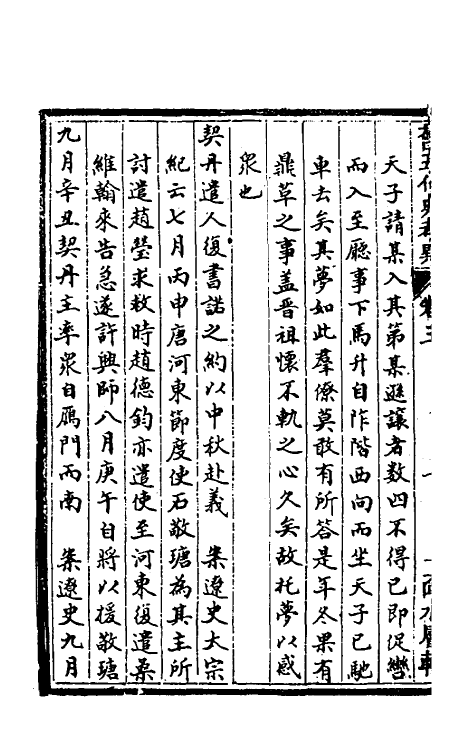 天子請某入其第某遜讓者數四不得已即促轡
而入至廳事下馬升自阼階西向而坐天子已馳
車去矣其夢如此羣僚莫敢有所答是年冬果有
鼎革之事蓋晉祖懷不軌之心久矣故托夢以惑
衆也
契丹遣人復書諾之約以中秋赴義　案遼史太宗
紀云七月丙申唐河東節度使石敬瑭為其主所
討遣趙瑩求救時趙德鈞亦遣使至河東復遣桑
維翰來告急遂許興師八月庚午自將以援敬瑭
九月辛丑契丹主率衆自鴈門而南　案遼史九月